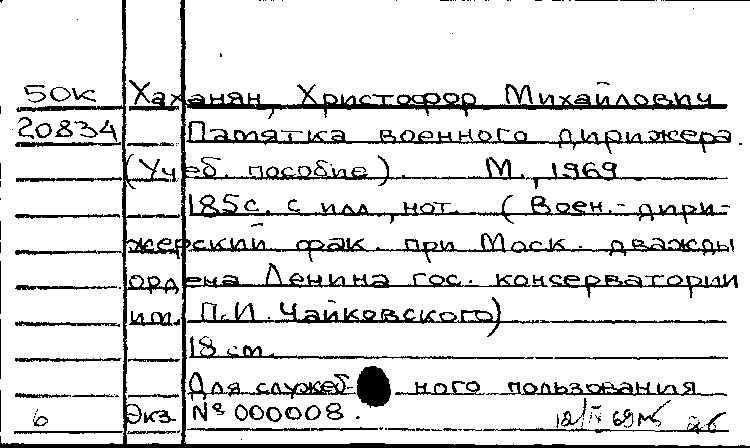 50К Хаханян, Христофор Михайлович
20834 Памятка военного дирижера.
(Учеб. пособие). М., 1969.
185с. с илл., нот. (Воен.-дири-
жерский фак. при Моск. дважды
ордена Ленина гос. консерватории
им. П.И. Чайковского)
18 см.
Для служеб- ного пользования
6 Экз. № 000008. 12/IV 69